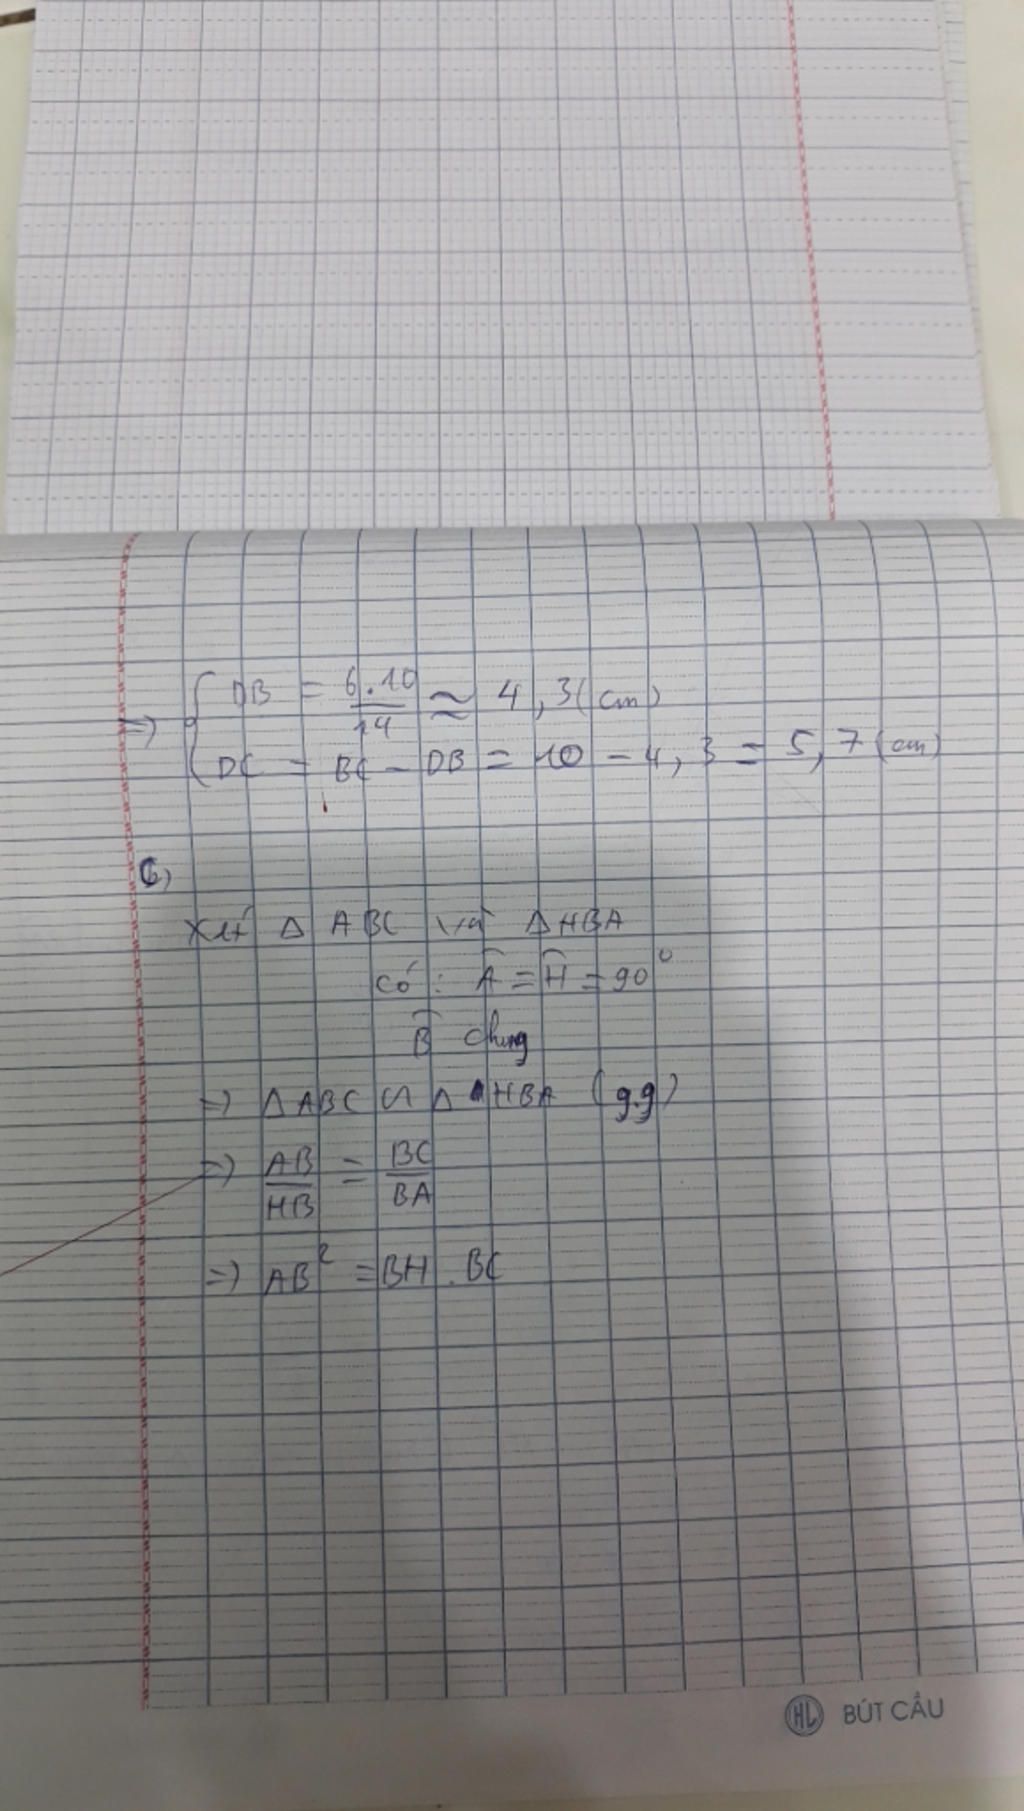 => { DB = 6.10/14 ≈ 4,3 (cm)
DC = BC - DB = 10 - 4,3 = 5,7 (cm)
C)
Xét Δ ABC và Δ HBA
có: Â = Ĥ = 90°
B̂ chung
=> Δ ABC ∽ Δ HBA (g.g)
=> AB/HB = BC/BA
=> AB² = BH . BC
HL BÚT CẦU